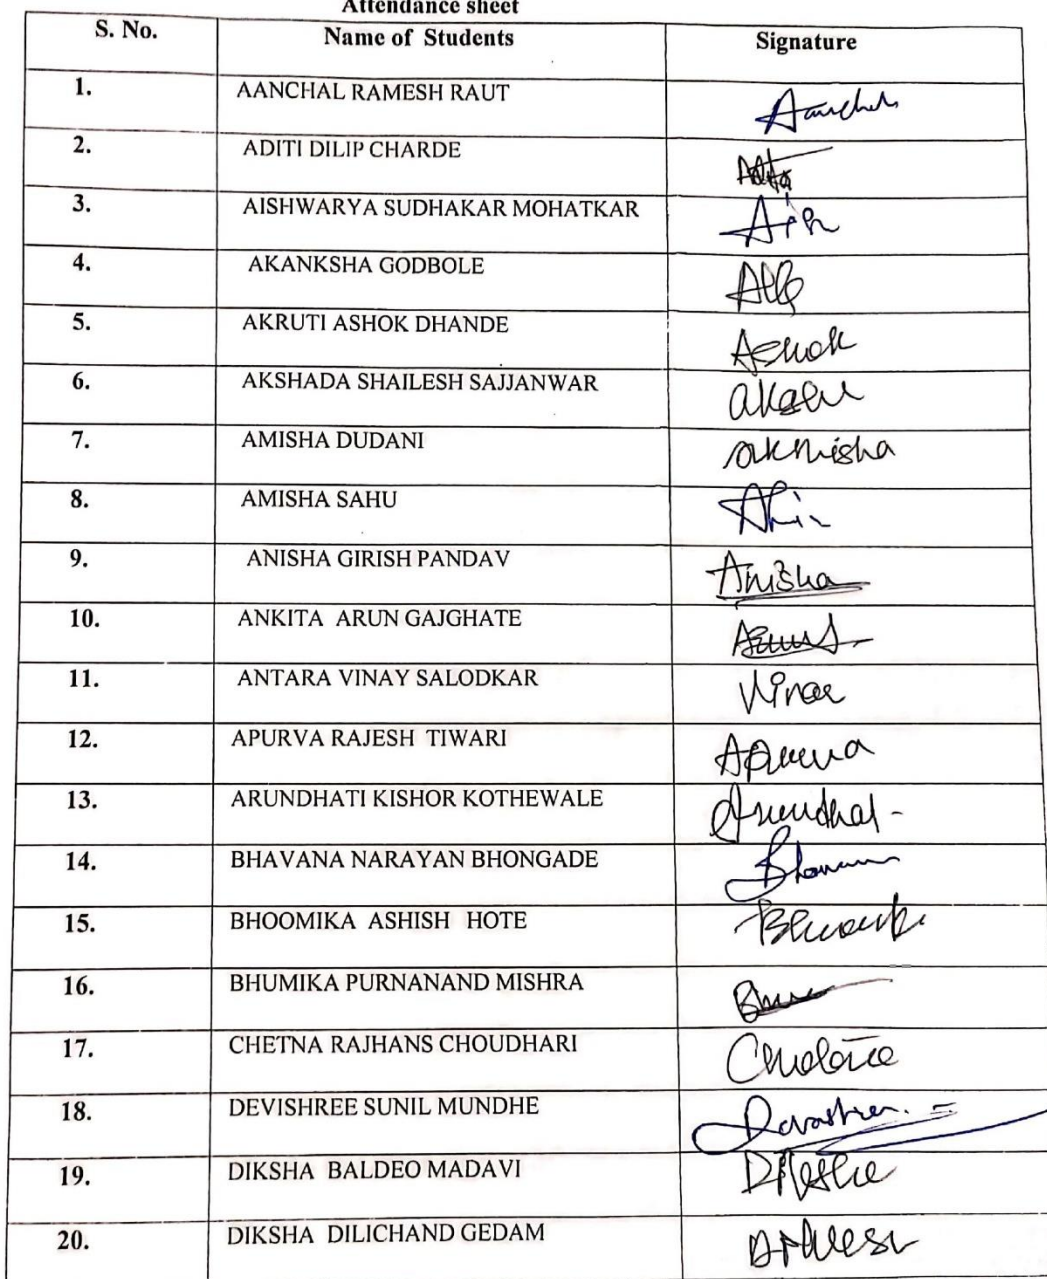 Attendance sheet
S. No. Name of Students Signature
1. AANCHAL RAMESH RAUT Aanchal
2. ADITI DILIP CHARDE
3. AISHWARYA SUDHAKAR MOHATKAR
4. AKANKSHA GODBOLE
5. AKRUTI ASHOK DHANDE Ashok
6. AKSHADA SHAILESH SAJJANWAR
7. AMISHA DUDANI
8. AMISHA SAHU
9. ANISHA GIRISH PANDAV Anisha
10. ANKITA ARUN GAJGHATE
11. ANTARA VINAY SALODKAR
12. APURVA RAJESH TIWARI Apurva
13. ARUNDHATI KISHOR KOTHEWALE
14. BHAVANA NARAYAN BHONGADE
15. BHOOMIKA ASHISH HOTE
16. BHUMIKA PURNANAND MISHRA
17. CHETNA RAJHANS CHOUDHARI
18. DEVISHREE SUNIL MUNDHE
19. DIKSHA BALDEO MADAVI
20. DIKSHA DILICHAND GEDAM